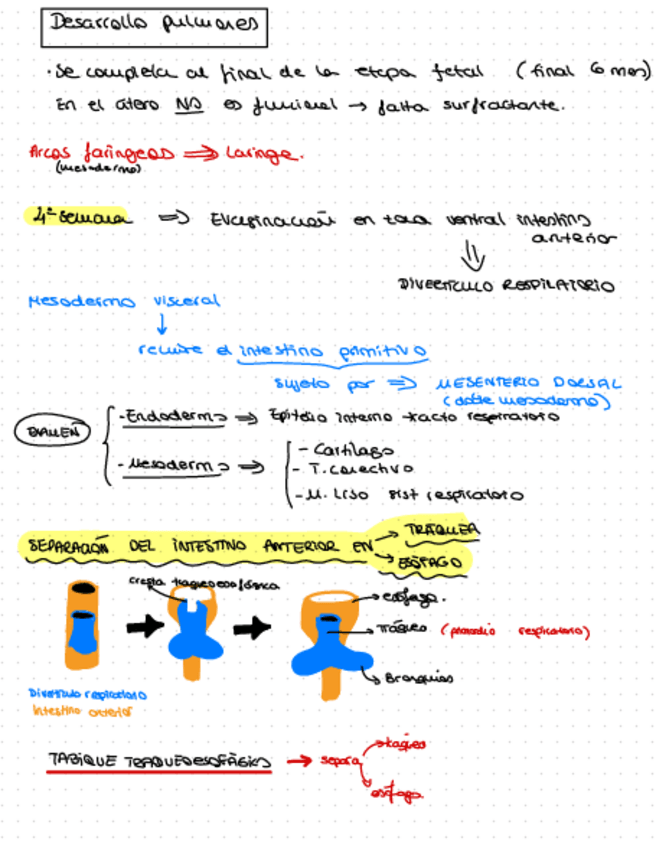 Desarrollo pulmones
· Se completa al final de la etapa fetal (final 6 mes)
En el útero NO es funcional → falta surfractante.
Arcos faríngeos ⇒ Laringe.
(mesodermo)
4ª semana ⇒ Evaginación en cara ventral intestino
anterior
⇓
DIVERTÍCULO RESPIRATORIO
Mesodermo visceral
↓
recubre el intestino primitivo
sujeto por ⇒ MESENTERIO DORSAL
(doble mesodermo)
EXAMEN
- Endodermo ⇒ Epitelio interno tracto respiratorio
- Mesodermo ⇒
- Cartílago
- T. conectivo
- M. Liso sist respiratorio
SEPARACIÓN DEL INTESTINO ANTERIOR EN
→ TRÁQUEA
→ ESÓFAGO
cresta traqueoesofágica
→ esófago.
→ Tráquea (primordio respiratorio)
→ Bronquios
Divertículo respiratorio
Intestino anterior
TABIQUE TRAQUEOESOFÁGICO → separa
tráquea
esófago.